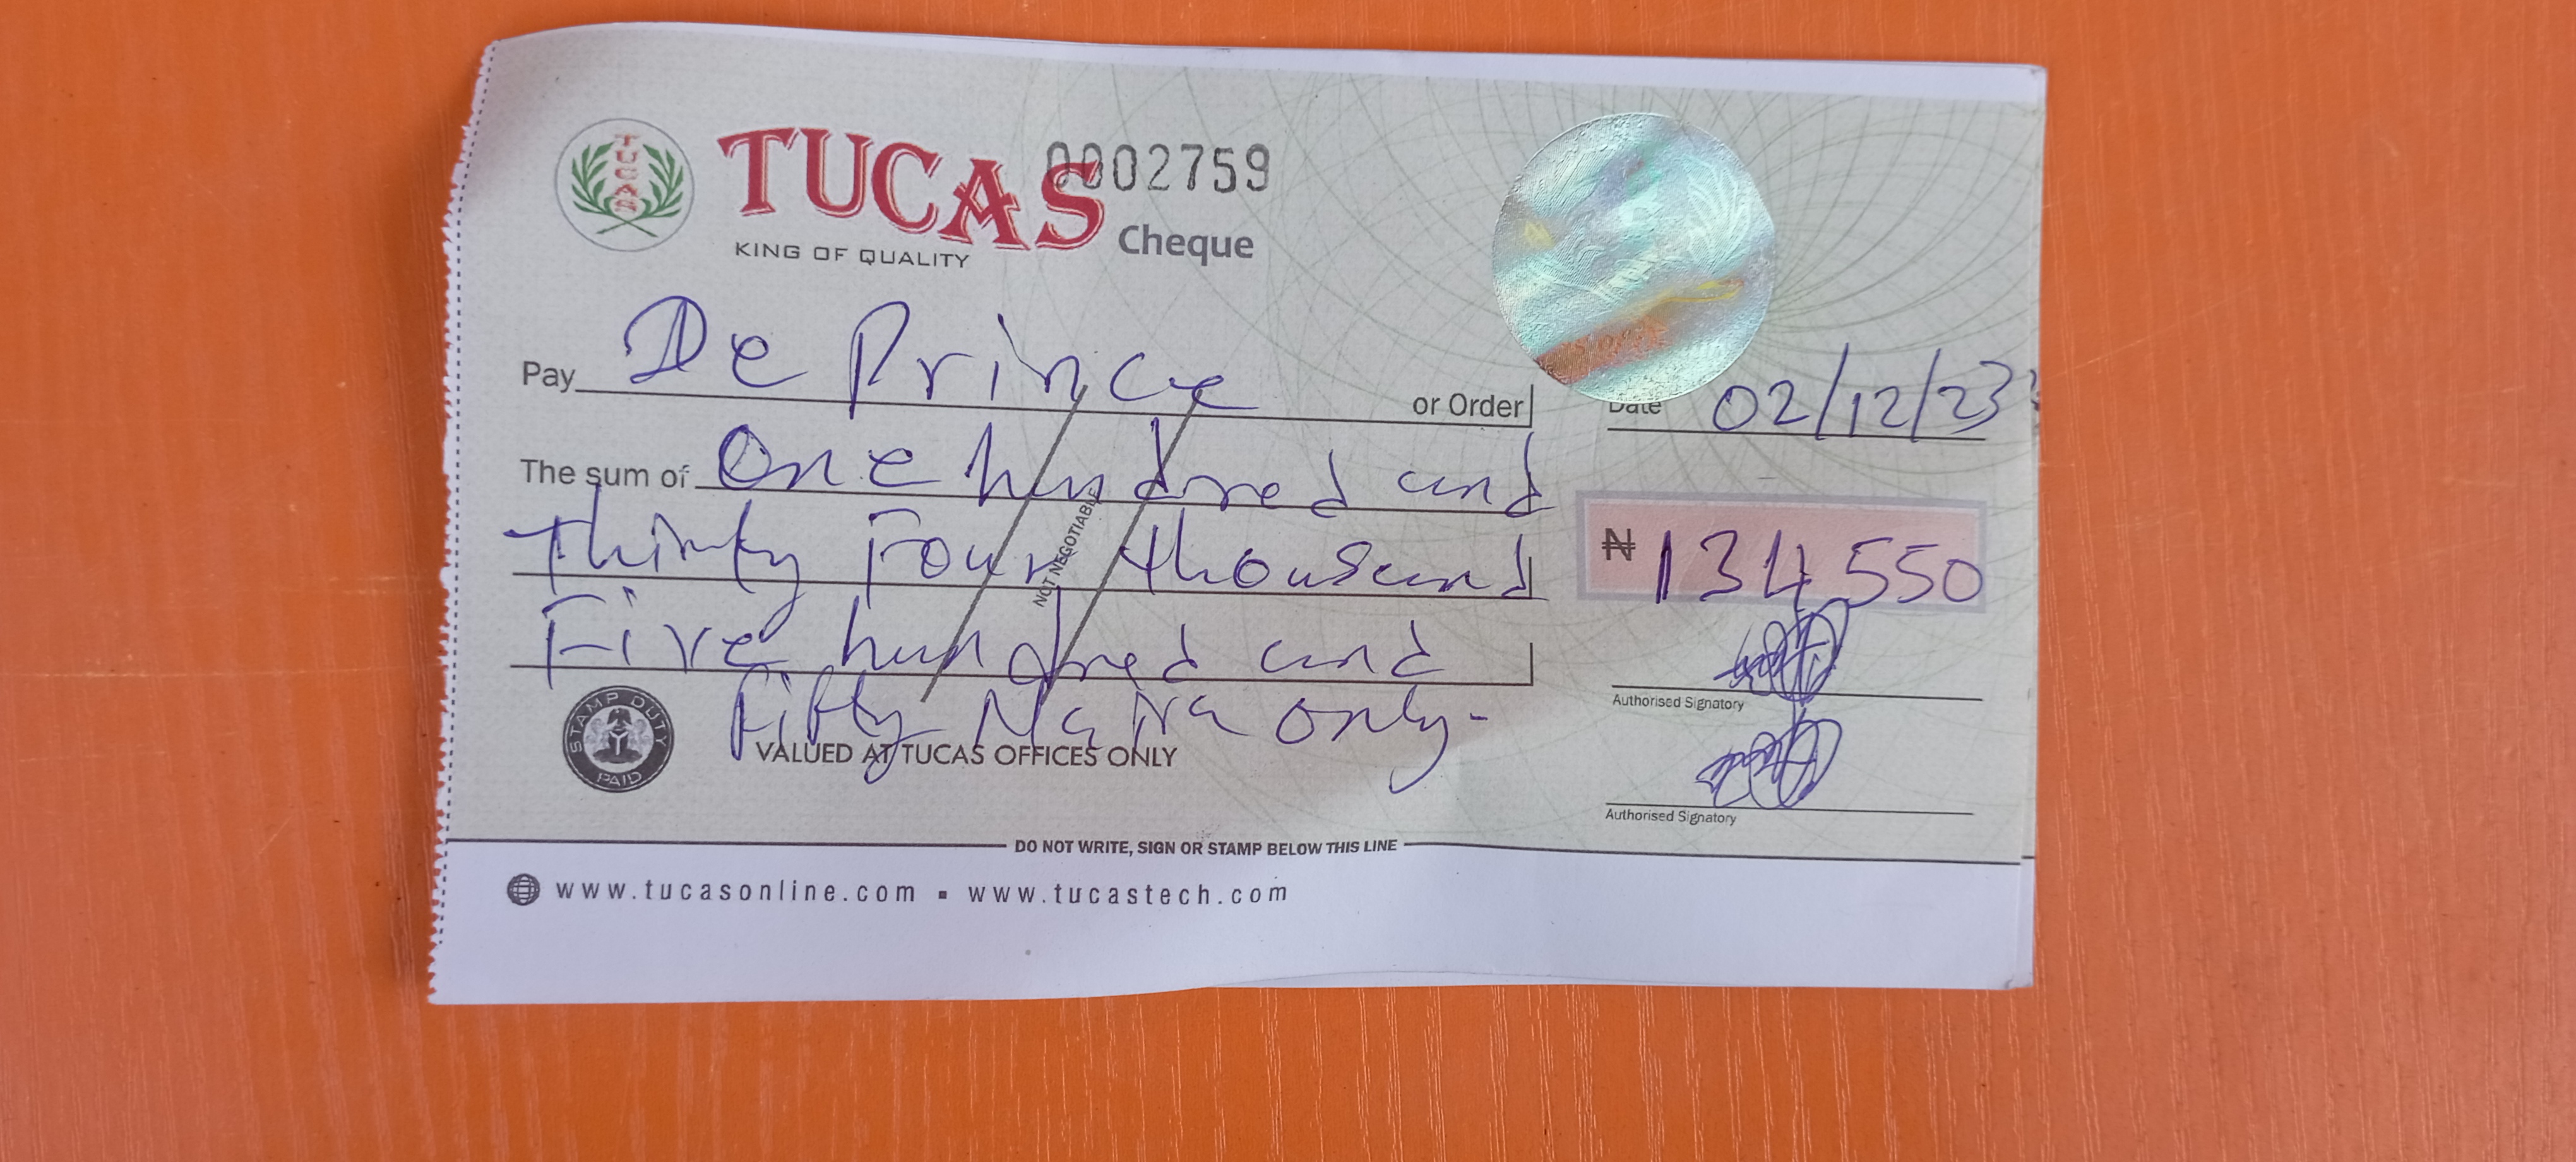 TUCAS
TUCAS 0002759
KING OF QUALITY
Cheque
Pay De Prince or Order
Date 02/12/23
The sum of One hundred and
Thirty Four thousand
₦ 134550
Five hundred and
Fifty Naira only-
NOT NEGOTIABLE
Authorised Signatory
STAMP DUTY
PAID
VALUED AT TUCAS OFFICES ONLY
Authorised Signatory
DO NOT WRITE, SIGN OR STAMP BELOW THIS LINE
www.tucasonline.com ▪ www.tucastech.com